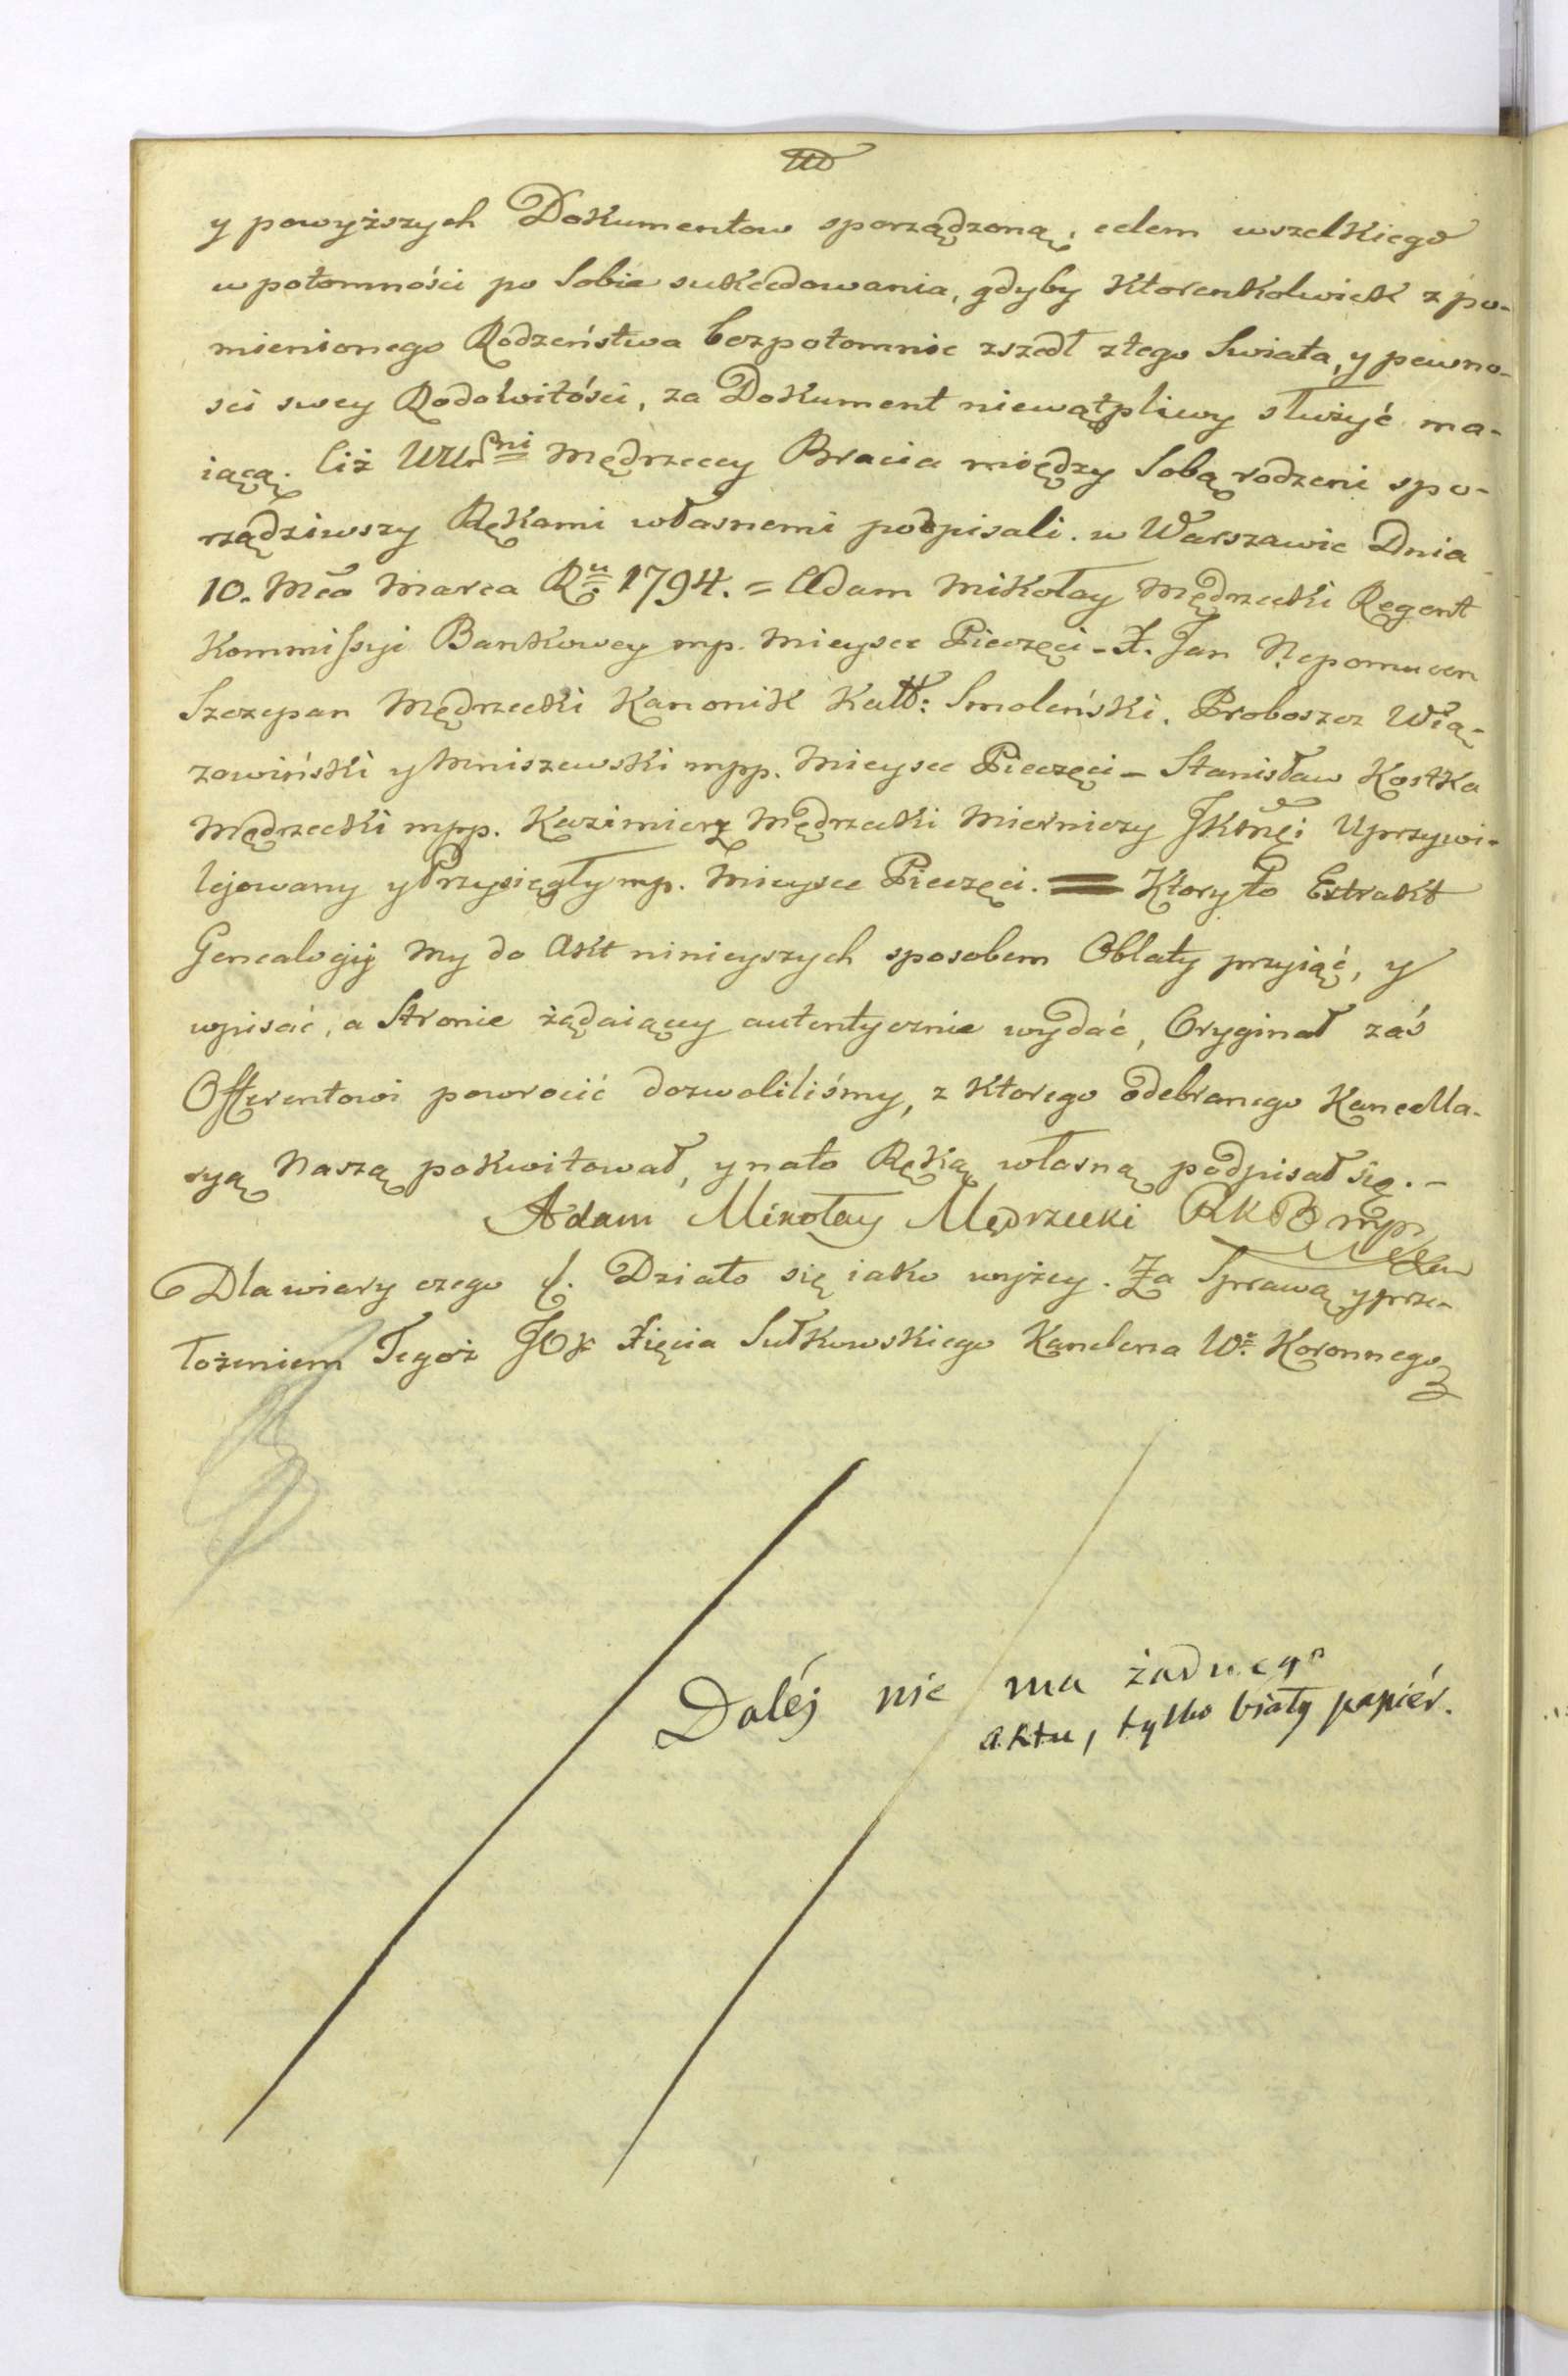 y powyższych Dokumentow sporządzoną, celem wszelkiego
w potomności po Sobie sukcedowania, gdyby Ktorenkolwiek z po-
mienionego Rodzeństwa bezpotomnie zszedł ztego Swiata, y pewno-
sci swey Rodowitości, za Dokument niewątpliwy służyć ma-
iącą. Ciż Mędrzeccy Bracia między Sobą rodzeni spo-
rządziwszy Rękami własnemi podpisali. w Warszawie Dnia
10. Mca Marca Ru 1794. = Adam Mikołay Mędrzecki Regent
Kommissyi Bankowey mp. Mieysce Pieczęci - X. Jan Nepomucen
Szczepan Mędrzecki Kanonik Katt: Smoleński, Proboszcz Wią-
zowiński y Mniszewski mpp. Mieysce Pieczęci - Stanisław Kostka
Mędrzecki mpp. Kazimierz Mędrzecki Mierniczy JKMci Uprzywi-
lejowany y Przysięgły mp. Mieysce Pieczęci. = Ktory to Extrakt
Genealogij my do Akt ninieyszych sposobem Oblaty przyiąć, y
wpisać, a Stronie żądaiącey autentycznie wydać, Oryginał zaś
Offerentowi powrocić dozwoliliśmy, z Ktorego odebranego Kancella-
ryą Naszą pokwitował, y nato Ręką własną podpisał się. -
Adam Mikołay Mędrzecki RKB mp
Dla wiary czego &. Działo się iako wyżey. Za Sprawą y prze-
łożeniem Tegoż JO Xięcia Sułkowskiego Kanclerza W. Koronnego
Daléj nie ma żadnego
aktu, tylko biały papiér.